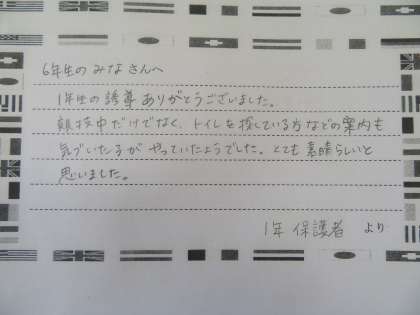 6年生のみなさんへ
1年生の誘導ありがとうございました。
競技中だけでなく、トイレを探している方などの案内も
気づいた子がやっていたようでした。とても素晴らしいと
思いました。
1年 保護者 より